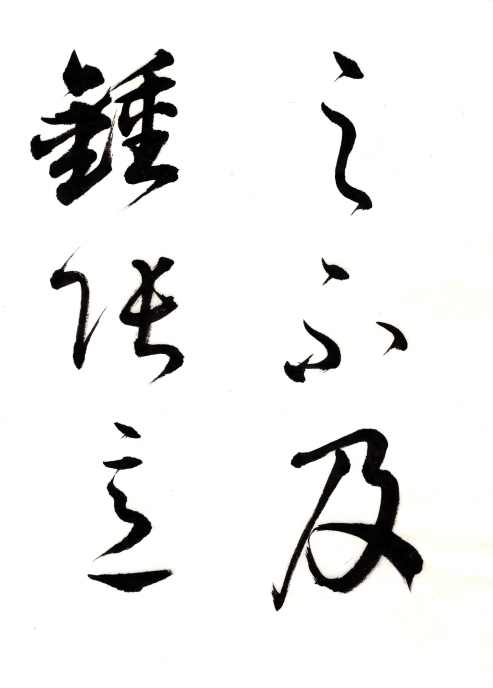 之不及
鍾張意